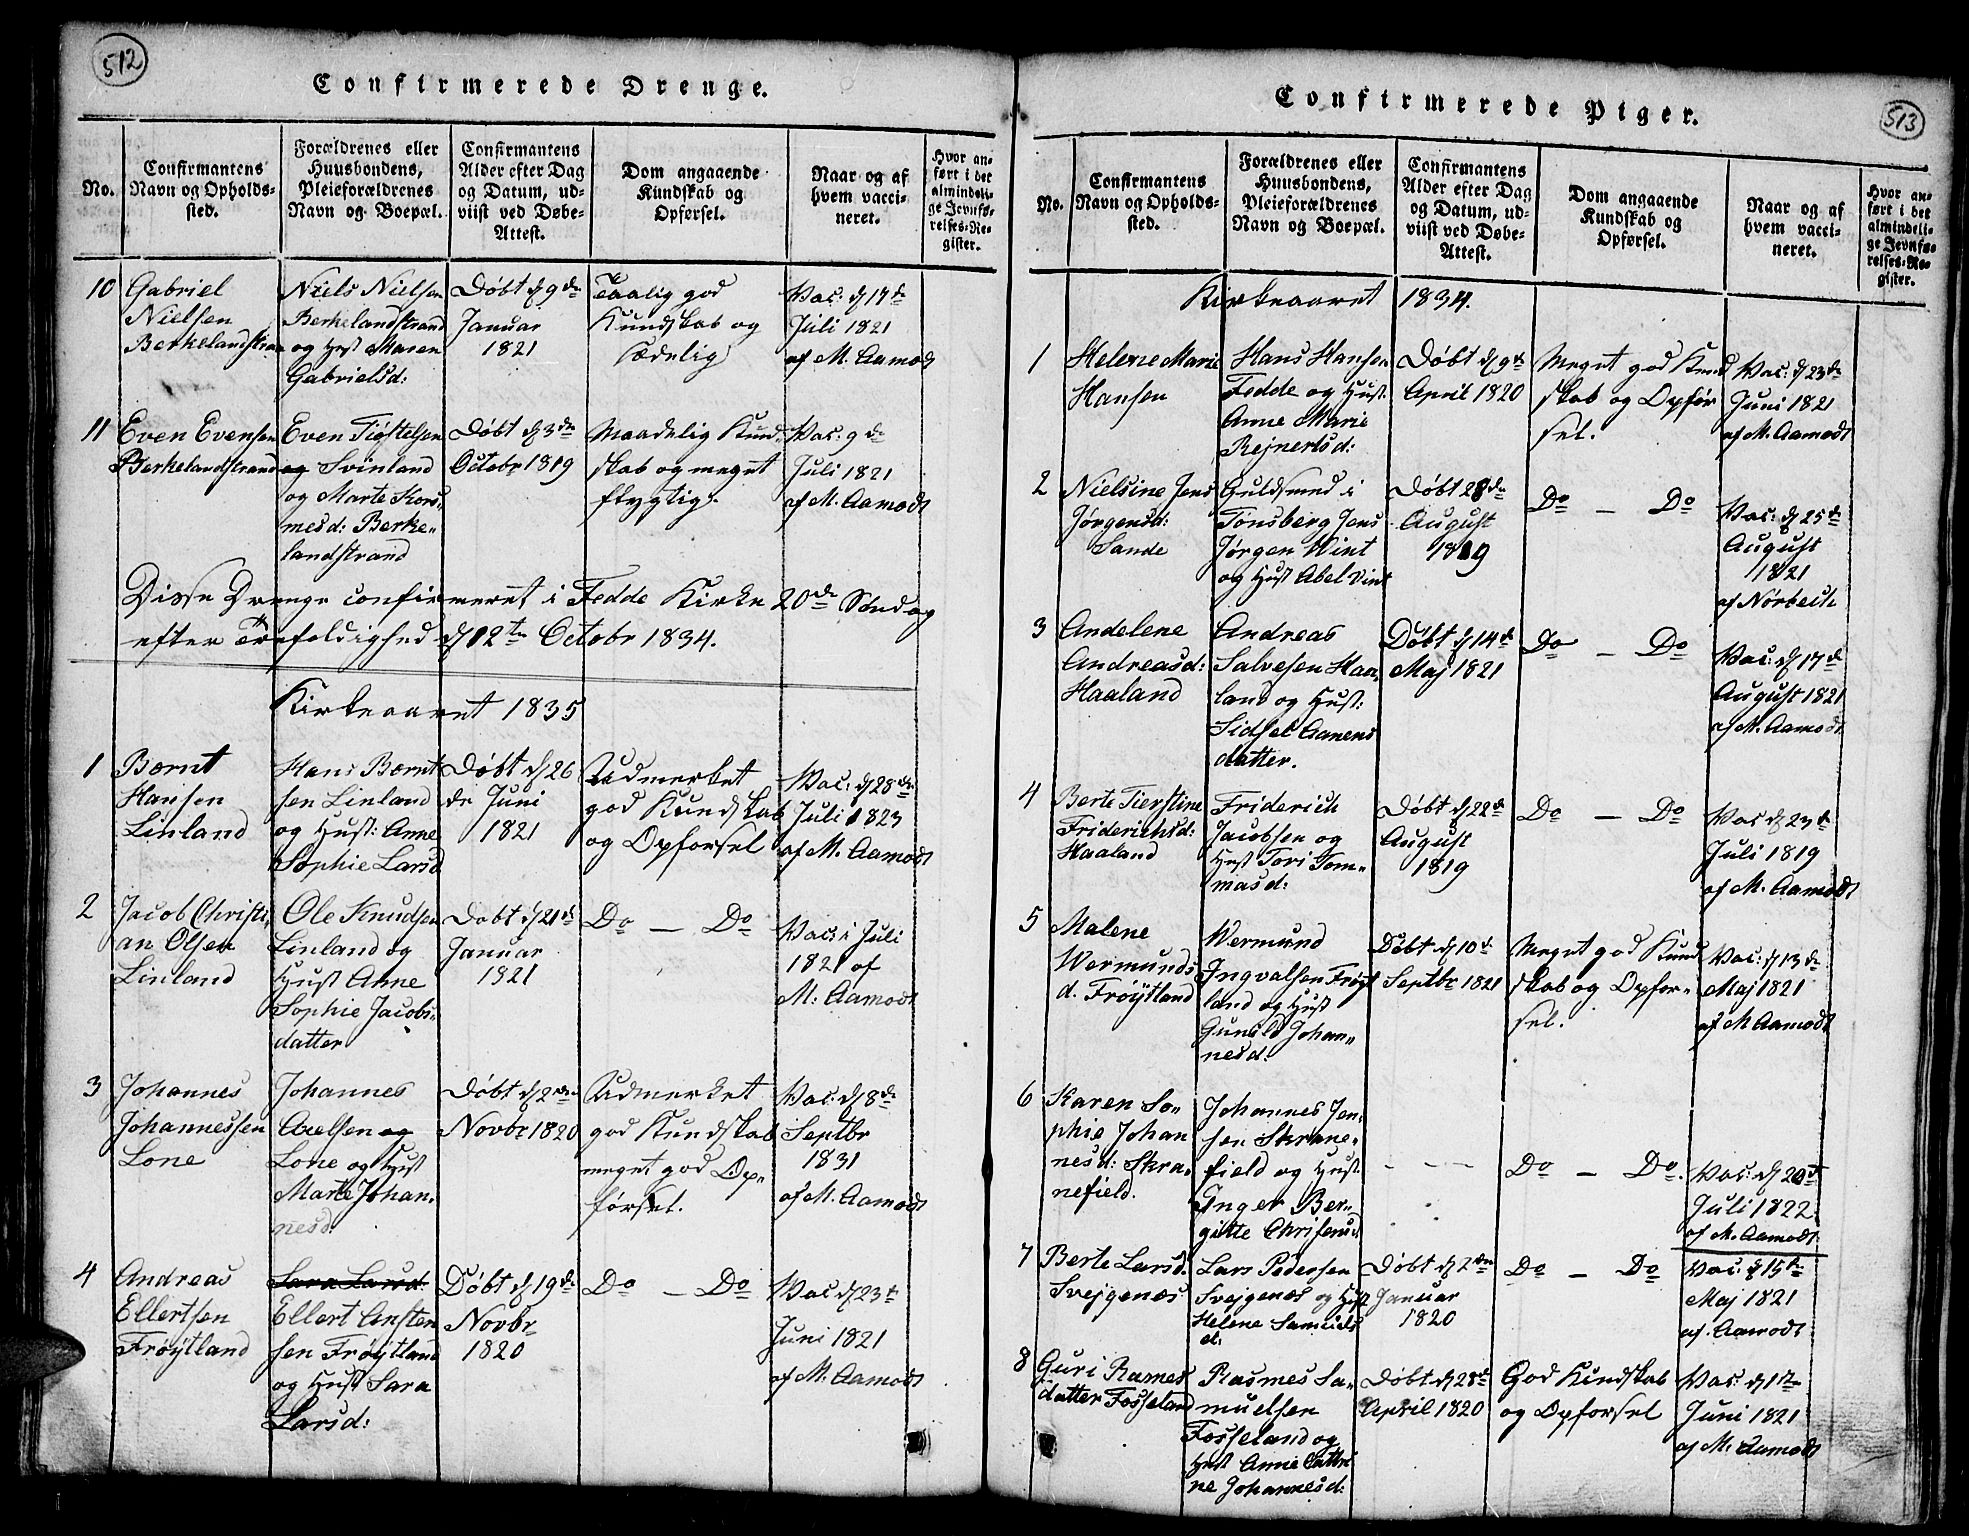 512
Confirmerede Drenge.
No.
Confirmantens
Navn og Opholds-
sted.
Forældrenes eller
Huusbondens,
Pleieforældrenes
Navn og Boepæl.
Confirmantens
Alder efter Dag
og Datum, ud-
viist ved Døbe-
Attest.
Dom angaaende
Kundskab og
Opførsel.
Naar og af
hvem vacci-
neret.
Hvor an-
ført i det
almindeli-
ge Jevnfø-
relses-Re-
gister.
10
Gabriel
Nielsen
Berkelandstran
Niels Nielsen
Berkelandstrand
og Hust Maren
Gabrielsd:
Døbt d 9 de
Januar
1821
Taalig god
Kundskab og
Sædelig
Vac: d 17 de
Juli 1821
af M. Aamodt
11
Even Evensen
Berkelandstrand
Even Tiøstelsen
og Svinland
og Marte Kors-
mesd: Berke„
landstrand
Døbt d 3 de
Octobr 1819
Maadelig Kund-
skab og meget
flygtig.
Vac: 9 de
Juli 1821
af M. Aamodt
Disse Drenge confirmeret i Fedde Kirke 20 de Søndag
efter Trefoldighed d 12 te Octobr 1834.
Kirkeaaret 1835
1
Bærnt
Hansen
Linland
Hans Bærnt
sen Linland
og Hust: Anne
Sophie Larsd
Døbt d 26
de Juni
1821
Udmerket
god Kundskab
og Opforsel
Vac: d 28 de
Juli 1823
af M. Aamodt
2
Jacob Christi
an Olsen
Linland
Ole Knudsen
Linland og
Hust Anne
Sophie Jacobs„
datter
Døbt d 21 de
Januar
1821
Do — Do
Vac: i Juli
1821 af
M: Aamodt
3
Johannes
Johannessen
Lone
Johannes
Axelsen og
Lone og Hust
Marte Johan„
nesd
Døbt d 2 den
Novbr 1820
Udmerket
god Kundskab
meget god Op„
førsel.
Vac: d 8 de
Septbr
1831
af M. Aamodt
4
Andreas
Ellertsen
Frøÿtland
Sara Larsd:
Ellert Ansten
sen Frøÿtland
og Hust Sara
Larsd:
Døbt d 19 de
Novbr
1820
Do — Do
Vac: d 23 de
Juni 1821
af M. Aamodt
513
Confirmerede Piger.
No.
Confirmantens
Navn og Opholds-
sted.
Forældrenes eller
Huusbondens,
Pleieforældrenes
Navn og Boepæl.
Confirmantens
Alder efter Dag
og Datum, ud-
viist ved Døbe-
Attest.
Dom angaaende
Kundskab og
Opførsel.
Naar og af
hvem vacci-
neret.
Hvor an-
ført i det
almindeli-
ge Jevnfø-
relses-Re-
gister.
Kirkeaaret 1834.
1
Helene Marie
Hansen
Hans Hansen
Fedde og Hust.
Anne Marie
Rejnertsd:
Døbt d 9 de
April 1820
Meget god Kund
skab og Opfør
sel.
Vac: d 23 de
Juni 1821
af M. Aamodt
2
Nielsine Jens
Jørgensd:
Sande
Guldsmed i
Tønsberg Jens
Jørgen Wint
og Hust Abel Vint
Døbt 28 de
August
1819
Do — Do
Vac: d 25 de
August
1821
af Nørbech
3
Andelene
Andreasd:
Haaland
Andreas
Salvesen Haa„
land og Hust:
Sidsel Aanens
datter.
Døbt d 14 de
Maj 1821
Do — Do
Vac: d 17 de
August 1821
af M. Aamodt
4
Berte Tierstine
Friderichsd:
Haaland
Friderich
Jacobsen og
Hust Tori Tom„
masd:
Døbt d 22 de
August
1819
Do — Do
Vac d 23 de
Juli 1819
af M. Aamodt
5
Malene
Wermunds
d. Frøÿtland
Wermund
Ingvalsen Frøÿt
land og Hust
Gunild Johan„
nesd:
Døbt d 10 de
Septbr 1821
Meget god Kund
skab og Opfor„
sel.
Vac: d 13 de
Maj 1821
af M Aamodt
6
Karen So„
phie Johan
nesd: Skra„
nefield.
Johannes Jen„
sen Skrane„
field og Hust
Inger Ber„
gitte Chrisensd
- - -
Do — Do.
Vac: d 20 de
Juli 1822.
af M. Aamodt
7
Berte Larsd.
Svejgenæs
Lars Pedersen
Svejgenæs og Hust
Helene Samuels
d:
Døbt d 2 den
Januar
1820
Do — Do
Vac: d 15 de
Maj 1821
af. Aamodt
8
Guri Rames
datter Fosseland
Rasmes Sa„
muelsen
Fosseland og
Hust Anne Cattri
ne Johannesd:
Døbt d 28 de
April 1820
God Kundskab
og Opforsel
Vac: d 1 ste
Juni 1821
af M. Aamodt